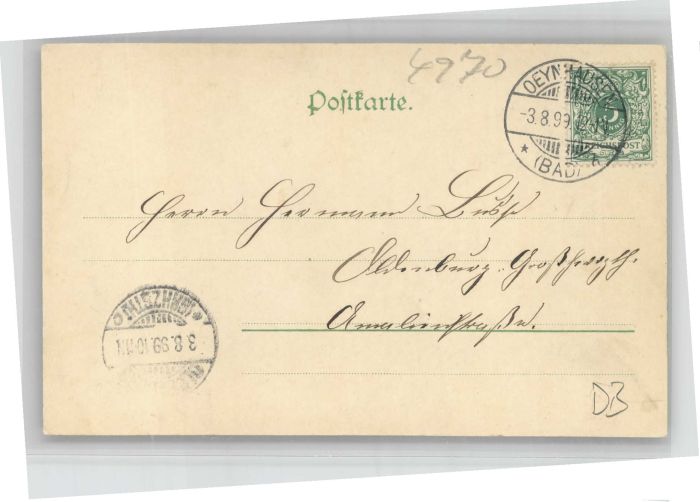 4970
Postkarte.
OEYNHAUSEN
-3.8.99.
* (BAD) *
REICHSPOST
Herrn Hermann Busse
Oldenburg. Großherzgth.
Amalienstraße.
3.8.99.10-11N
DB